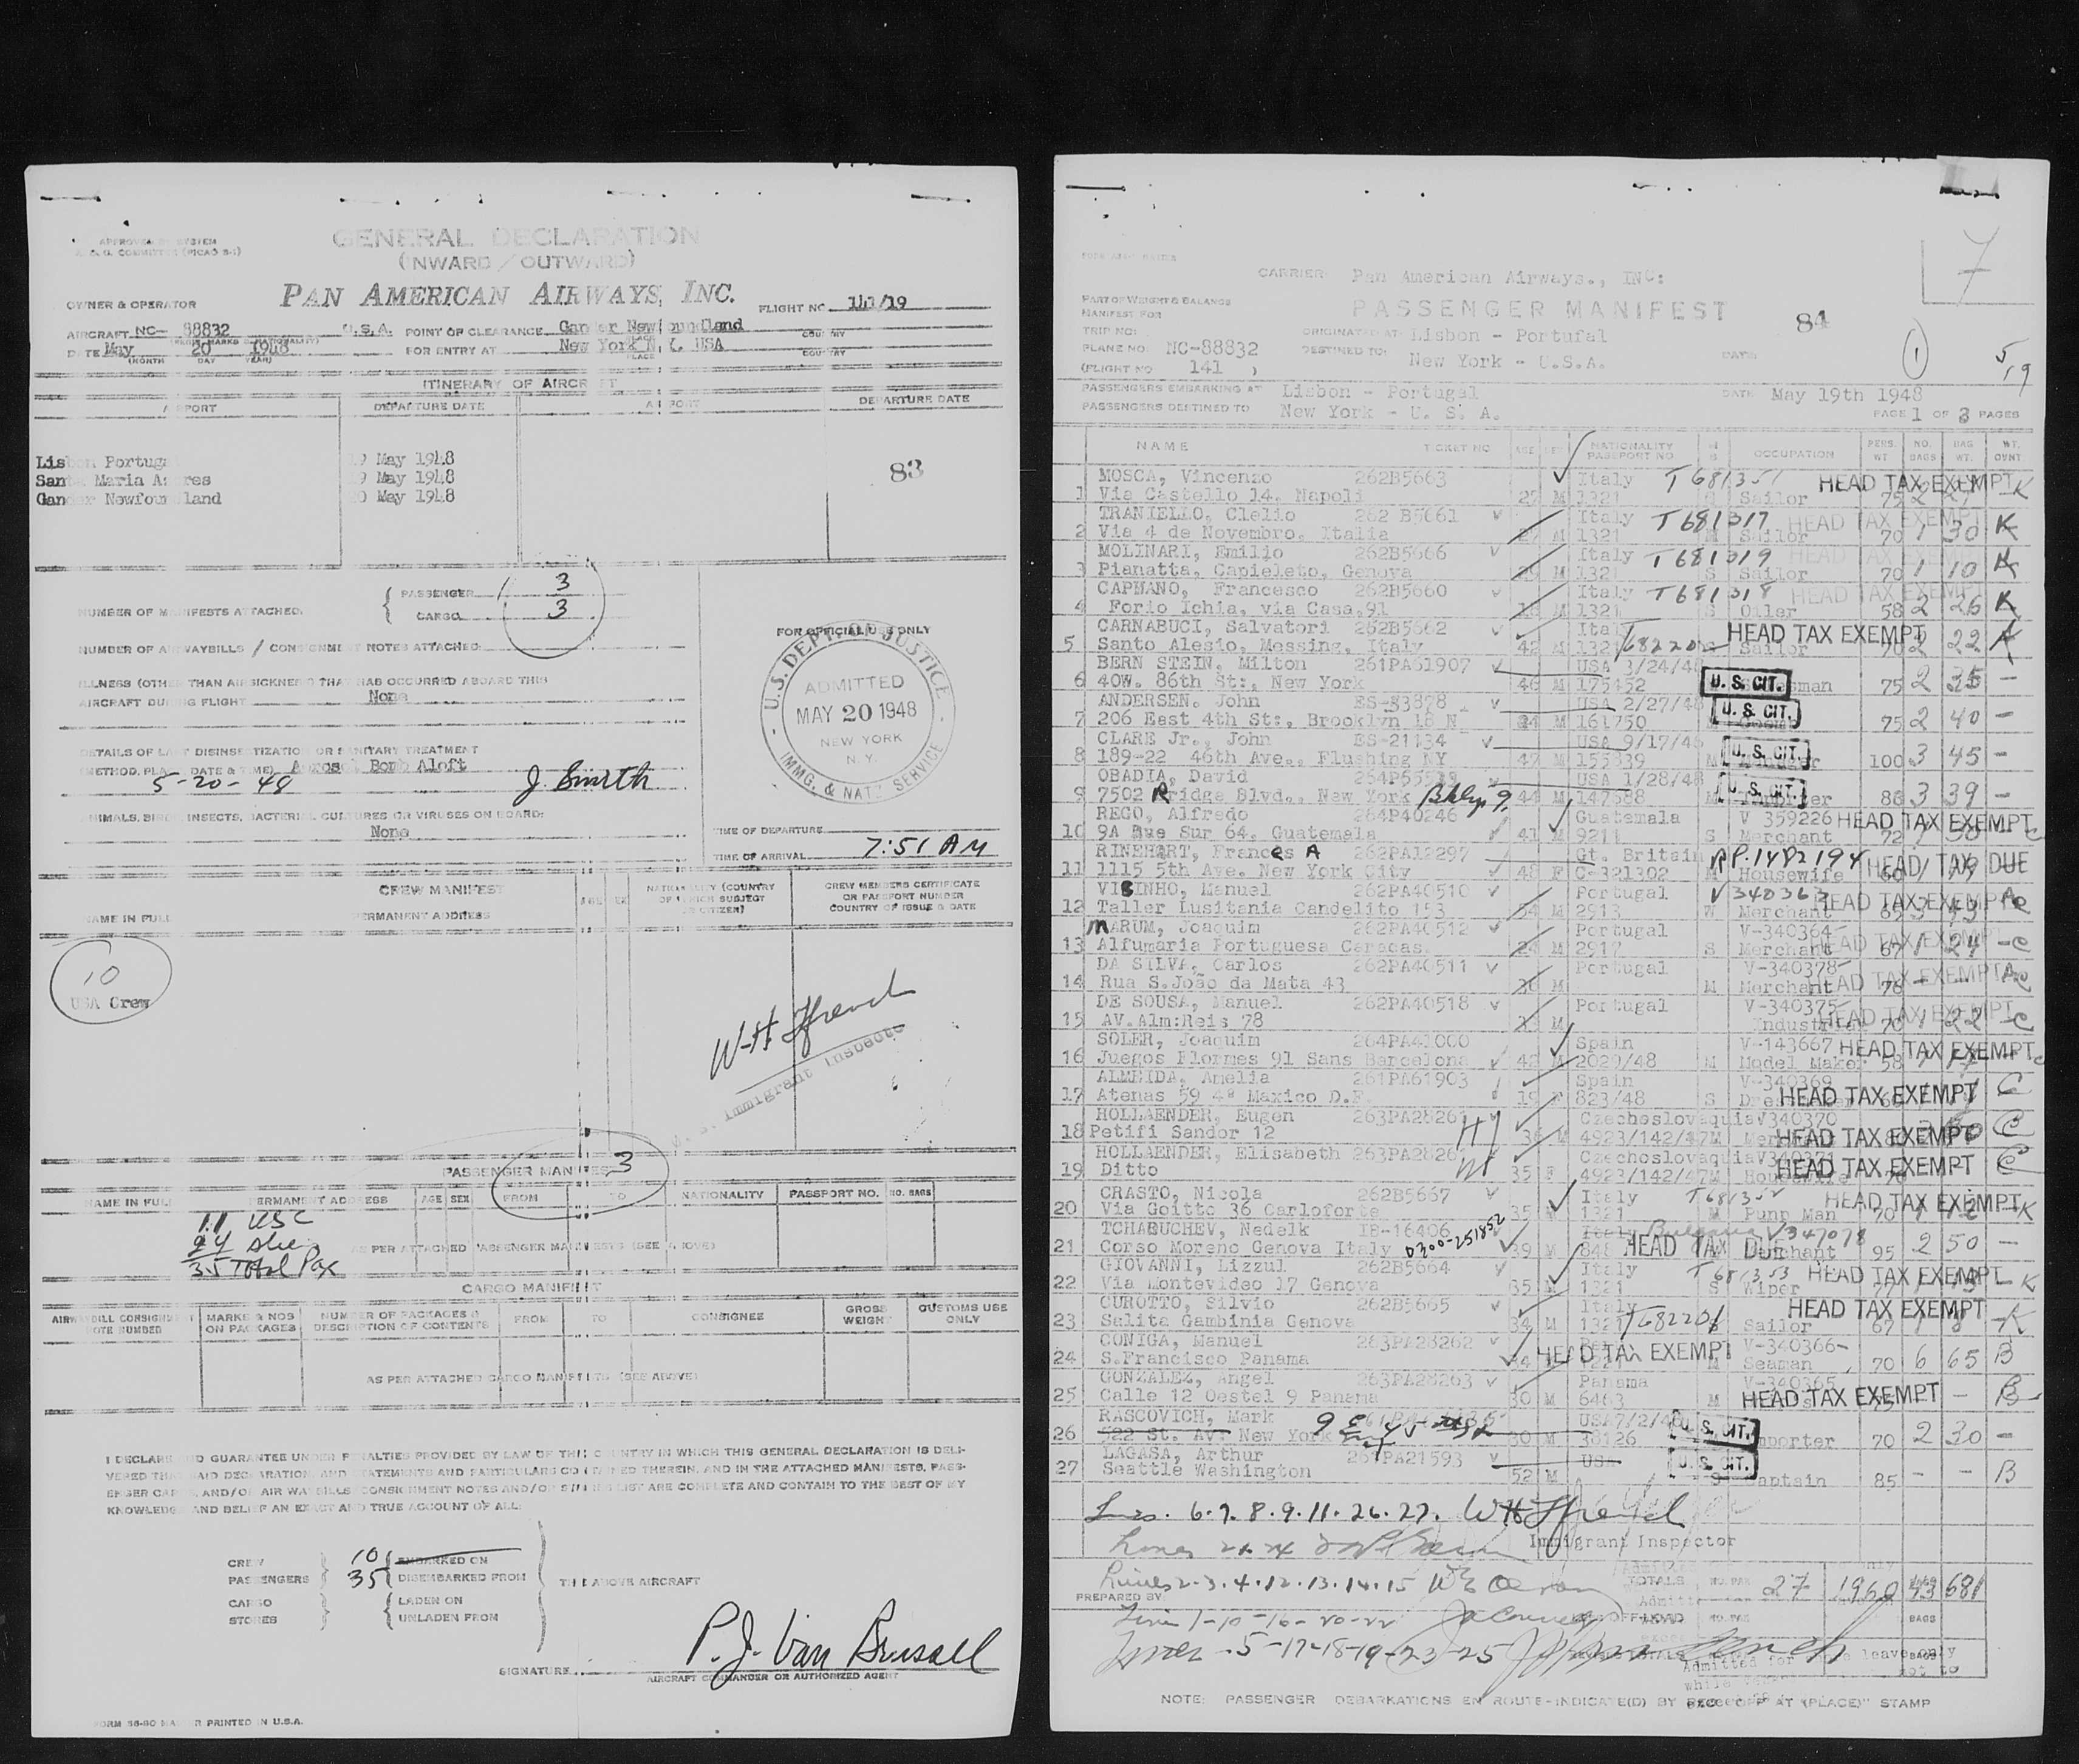 GENERAL DECLARATION
(INWARD / OUTWARD)
PAN AMERICAN AIRWAYS, INC.
OWNER & OPERATOR
FLIGHT NO. 141/19
AIRCRAFT NC- 88832 U.S.A. POINT OF CLEARANCE Gander Newfoundland
DATE May 20 1948 FOR ENTRY AT New York N.Y. USA
(MONTH DAY YEAR) PLACE COUNTRY
ITINERARY OF AIRCRAFT
AIRPORT DEPARTURE DATE AIRPORT DEPARTURE DATE
Lisbon Portugal 19 May 1948
Santa Maria Azores 19 May 1948
Gander Newfoundland 20 May 1948
83
NUMBER OF MANIFESTS ATTACHED:
PASSENGER 3
CARGO 3
NUMBER OF AIRWAYBILLS / CONSIGNMENT NOTES ATTACHED:
ILLNESS (OTHER THAN AIRSICKNESS) THAT HAS OCCURRED ABOARD THIS
AIRCRAFT DURING FLIGHT None
DETAILS OF LAST DISINSECTIZATION OR SANITARY TREATMENT
(METHOD, PLACE, DATE & TIME) Aerosol Bomb Aloft
5-20-48 J. Smith
ANIMALS, BIRDS, INSECTS, BACTERIAL CULTURES OR VIRUSES ON BOARD:
None
FOR OFFICIAL USE ONLY
U.S. DEPT. OF JUSTICE
ADMITTED
MAY 20 1948
NEW YORK
N.Y.
IMMG. & NATZ SERVICE
TIME OF DEPARTURE
TIME OF ARRIVAL 7:51 AM
CREW MANIFEST
NAME IN FULL PERMANENT ADDRESS AGE SEX NATIONALITY (COUNTRY OF WHICH SUBJECT OR CITIZEN) CREW MEMBERS CERTIFICATE OR PASSPORT NUMBER COUNTRY OF ISSUE & DATE
10
USA Crew
W H Ffrench
U. S. Immigrant Inspector
PASSENGER MANIFEST 3
NAME IN FULL PERMANENT ADDRESS AGE SEX FROM TO NATIONALITY PASSPORT NO. NO. BAGS
11 USC
24 alie
35 Total Pax
AS PER ATTACHED PASSENGER MANIFESTS (SEE ABOVE)
CARGO MANIFEST
AIRWAYBILL CONSIGNMENT NOTE NUMBER MARKS & NOS ON PACKAGES NUMBER OF PACKAGES & DESCRIPTION OF CONTENTS FROM TO CONSIGNEE GROSS WEIGHT CUSTOMS USE ONLY
AS PER ATTACHED CARGO MANIFESTS (SEE ABOVE)
I DECLARE AND GUARANTEE UNDER PENALTIES PROVIDED BY LAW OF THE COUNTRY IN WHICH THIS GENERAL DECLARATION IS DELI-
VERED THAT SAID DECLARATION, AND STATEMENTS AND PARTICULARS CONTAINED THEREIN, AND IN THE ATTACHED MANIFESTS, PASS-
ENGER CARGO, AND/OR AIR WAYBILLS CONSIGNMENT NOTES AND/OR STORES LIST ARE COMPLETE AND CONTAIN TO THE BEST OF MY
KNOWLEDGE AND BELIEF AN EXACT AND TRUE ACCOUNT OF ALL:
CREW 10 EMBARKED ON
PASSENGERS 35 DISEMBARKED FROM THE ABOVE AIRCRAFT
CARGO LADEN ON
STORES UNLADEN FROM
P. J. Van Brussell
SIGNATURE
AIRCRAFT COMMANDER OR AUTHORIZED AGENT
PRINTED IN U.S.A.
7
CARRIER: Pan American Airways., INC:
PART OF WEIGHT & BALANCE
MANIFEST FOR
PASSENGER MANIFEST
84
TRIP NO: ORIGINATED AT: Lisbon - Portufal
PLANE NO: NC-88832 DESTINED TO: New York - U.S.A. DATE:
(FLIGHT NO 141 )
1
5/19
PASSENGERS EMBARKING AT Lisbon - Portugal DATE May 19th 1948
PASSENGERS DESTINED TO New York - U. S. A. PAGE 1 OF 3 PAGES
NAME TICKET NO AGE SEX NATIONALITY PASSPORT NO. OCCUPATION PERS. WT NO. BAGS BAG WT. WT. CVNT.
MOSCA, Vincenzo 262B5663 Italy T681351 HEAD TAX EXEMPT K
1 Via Castello 14. Napoli 27 M 1321 S Sailor 75 2
TRANIELLO, Clelio 262 B5661 Italy T681317 HEAD TAX EXEMPT
2 Via 4 de Novembro. Italia M 1321 Sailor 70 1 30 K
MOLINARI, Emilio 262B5666 Italy T681319 HEAD TAX EXEMPT
3 Pianatta, Capieleto, Genova M 1321 S Sailor 70 1 10 K
CAPMANO, Francesco 262B5660 Italy T681318 HEAD TAX EXEMPT
4 Forio Ichia, via Casa,91 M 1321 S Oiler 58 2 26 K
CARNABUCI, Salvatori 262B5662 HEAD TAX EXEMPT
5 Santo Alesio, Messing, Italy 42 M 1321 Sailor 70 2 22 K
BERN STEIN, Milton 261PA61907 USA 3/24/48
6 40W. 86th St:, New York 46 M 175452 U. S. CIT. 75 2 35 -
ANDERSEN, John ES-83878 USA 2/27/48
7 206 East 4th St:, Brooklyn 18 N M 161750 U. S. CIT. 75 2 40 -
CLARE Jr., John ES-21134 USA 9/17/46
8 189-22 46th Ave., Flushing NY 47 M 155339 U. S. CIT. 100 3 45 -
OBADIA, David USA 1/28/48
9 7502 Ridge Blvd., New York Bklyn 9. 44 M 147688 U. S. CIT. 88 3 39 -
REGO, Alfredo 264P40246 Guatemala V 359226 HEAD TAX EXEMPT
10 9A Bue Sur 64, Guatemala 41 M 9211 S Merchant 72
RINEHART, Frances A 262PA12297 Gt. Britain RP.1482194 HEAD TAX DUE
11 1115 5th Ave. New York City 48 F C-321302 Housewife
VISINHO, Manuel 262PA40510 Portugal V340363 HEAD TAX EXEMPT
12 Taller Lusitania Candelito 153 54 M 2913 W Merchant
MARUM, Joaquim 262PA40512 Portugal V-340364 HEAD TAX EXEMPT
13 Alfumaria Portuguesa Caracas. 24 M 2917 S Merchant 67 1 24 -C
DA SILVA, Carlos 262PA40511 Portugal V-340378- HEAD TAX EXEMPT
14 Rua S.João da Mata 43 M M Merchant 76 -
DE SOUSA, Manuel 262PA40518 Portugal V-340375- HEAD TAX EXEMPT
15 AV.Alm:Reis 78 M 70 1 22 -C
SOLER, Joaquim 264PA41000 Spain V-143667 HEAD TAX EXEMPT
16 Juegos Flormes 91 Sans Barcelona 42 M 2029/48 M Model Maker 58
ALMEIDA, Amelia 261PA61903 Spain V-340369
17 Atenas 59 4ª Maxico D.F. 19 F 823/48 S HEAD TAX EXEMPT C
HOLLAENDER, Eugen 263PA28261 CzechoslovaquiaV340370
18 Petifi Sandor 12 M 4923/142/47 M HEAD TAX EXEMPT C
HOLLAENDER, Elisabeth CzechoslovaquiaV340371
19 Ditto 35 F 4923/142/47 M Housewife HEAD TAX EXEMPT C
CRASTO, Nicola 262B5667 Italy T681352 HEAD TAX EXEMPT
20 Via Goitto 36 Carloforte 35 M 1321 M Pump Man 70 K
TCHABUCHEV, Nedelk IB-16406 Italy Bulgaria V347078
21 Corso Moreno Genova Italy 0300-251852 39 M HEAD TAX DUE 95 2 50 -
GIOVANNI, Lizzul 262B5664 Italy T681353 HEAD TAX EXEMPT
22 Via Montevideo 17 Genova 35 M 1321 S Wiper K
CUROTTO, Silvio 262B5665 Italy HEAD TAX EXEMPT
23 Salita Gambinia Genova 34 M 1321 T682201 Sailor 67 K
CONIGA, Manuel 263PA28262 HEAD TAX EXEMPT V-340366-
24 S.Francisco Panama Seaman 70 6 65 B
GONZALEZ, Angel 263PA28263 Panama V-340365
25 Calle 12 Oestel 9 Panama 30 M 6463 M HEAD TAX EXEMPT - B-
RASCOVICH, Mark USA 7/2/48
26 522 St. Av. New York 30 M 38126 U. S. CIT. Importer 70 2 30 -
LAGASA, Arthur 261PA21593 USA
27 Seattle Washington 52 M U. S. CIT. Captain 85 - - B
Lines. 6.7.8.9.11.26.27. W H Ffrench
Immigrant Inspector
Lines
Lines 2.3.4.12.13.14.15
TOTALS NO. PAX 27 1960 43 681
PREPARED BY:
Line 1-10-16-20-22
OFF-LOAD NO. PAX BAGS
Lines -5-17-18-19-23-25
NOTE: PASSENGER DEBARKATIONS EN ROUTE-INDICATE(D) BY "OFF AT (PLACE)" STAMP